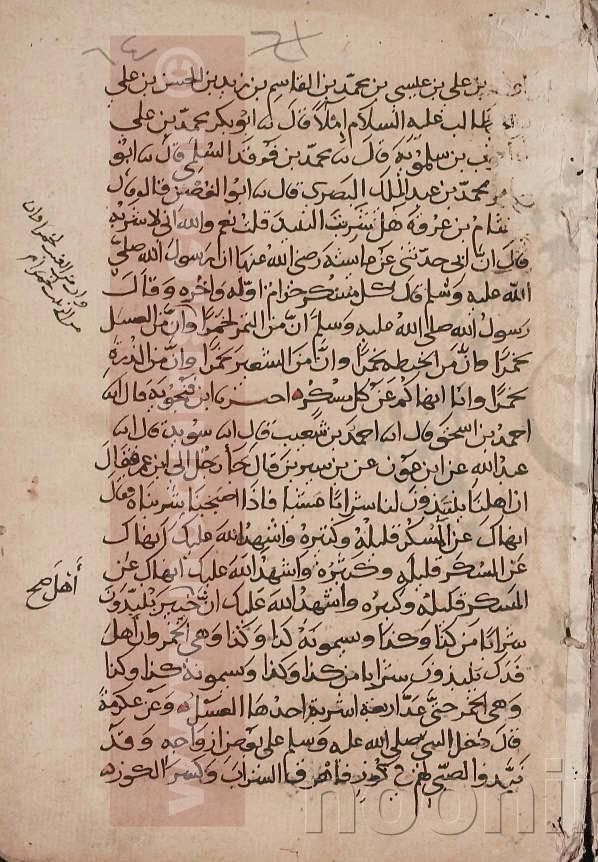 بن علي بن عيسى بن محمد بن القاسم بن زيد بن الحسن بن علي
طالب عليه السلام إملاً قال نا ابو بكر محمد بن علي
بن سلمويه قال نا محمد بن فرقد السلمي قال نا ابو
محمد بن عبد الملك البصري قال نا ابو الغصن قال قال
هشام بن عروة هل شربت النبيذ قلت نعم والله اني لا شربه
قال ان ابي حدثني عن عايشه رضي الله عنها ان رسول الله صلى
الله عليه وسلم قال كل مسكر حرام اوله واخره وقال
رسول الله صلى الله عليه وسلم انّ من التمر لخمرا وانّ من العسل
خمرا وانّ من الحنطه خمرا وانّ من الشعير خمرا وانّ من الذرة
خمرا وانا انهاكم عن كل مسكر ابن فنجويه قال نا
احمد بن اسحق قال نا احمد بن شعيب قال نا سويد قال نا
عبد الله عن ابن عون عن بن سيرين قال جا رجل الى ابن عمر فقال
ان اهلنا ينبذون لنا شرابا عشيا فاذا اصبحنا شربناه فقال
انهاك عن المسكر قليله وكثيره واشهد الله عليك انهاك
عن المسكر قليله وكثيره واشهد الله عليك انهاك عن
المسكر قليله وكثيره واشهد الله عليك ان خيبر ينبذون
شرابا من كذا وكذا ويسمونه كذا وكذا وهي الخمر وان اهل
فدك ينبذون شرابا من كذا وكذا ويسمونه كذا وكذا
وهي الخمر حتى عدّ اربعة اشربة احدها العسل وعن عكرمة
قال دخل النبي صلى الله عليه وسلم على بعض ازواجه وقد
نبذوا لصبي لهم في كوز فاهرق الشراب وكسر الكوز
وان من العنب لخمرا وان
من الزبيب لخمرا
أهل صح
www.
nooni